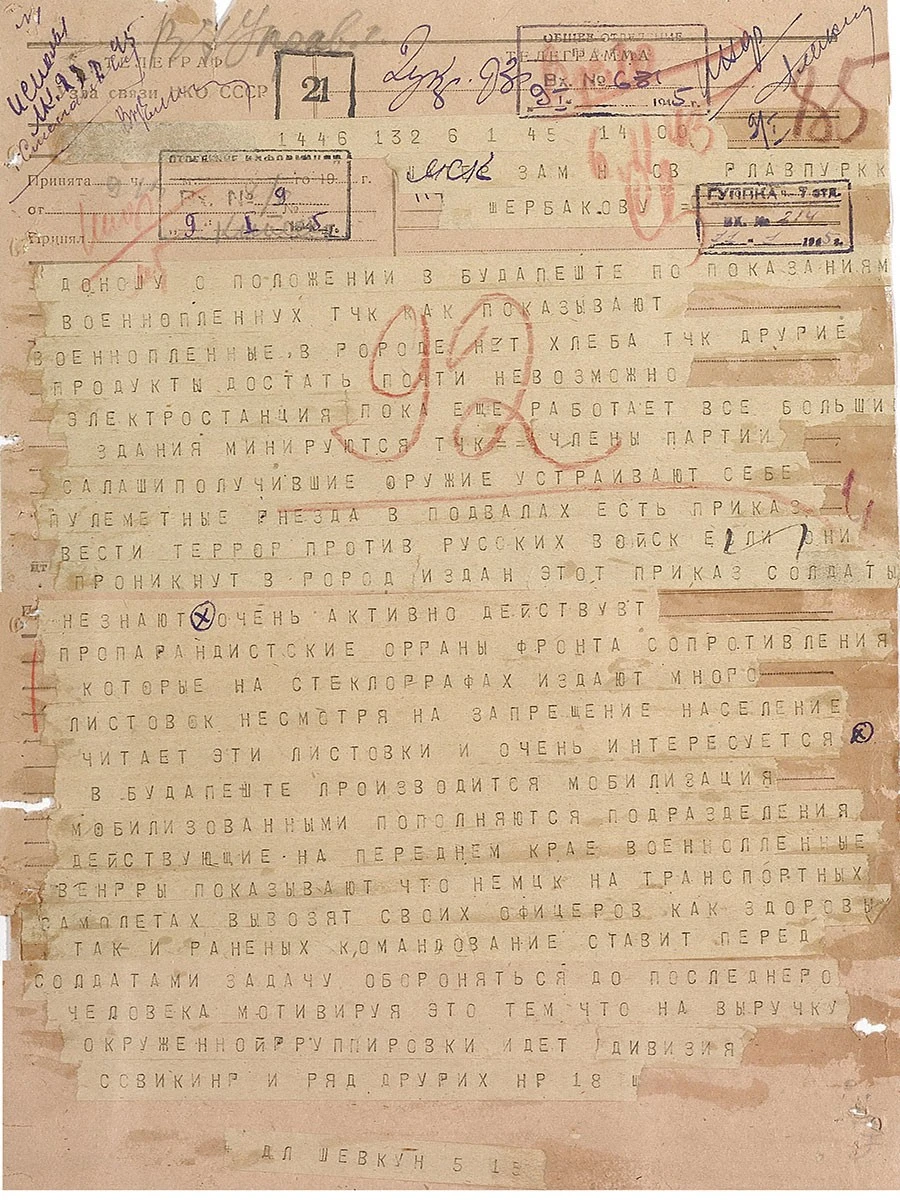 ТЕЛЕГРАФ
ТЕЛЕГРАММА
связи НКО СССР
21
ОБЩЕЕ ОТДЕЛЕНИЕ
Вх. № 631
9 I 1945 г.
185
1446 132 6 1 45 14 00
Принята
г.
ОТДЕЛЕНИЕ ИНФОРМАЦИИ
Вх. № 9
9 I 1945 г.
от
Принял
МСК ЗАМ РЛАВПУРКК
ШЕРБАКОВУ =
Вх. № 214
1945 г.
ДОНОШУ О ПОЛОЖЕНИИ В БУДАПЕШТЕ ПО ПОКАЗАНИЯМ
ВОЕННОПЛЕННУХ ТЧК КАК ПОКАЗЫВАЮТ
ВОЕННОПЛЕННЫЕ В РОРОДЕ НЕТ ХЛЕБА ТЧК ДРУРИЕ
ПРОДУКТЫ ДОСТАТЬ ПОЧТИ НЕВОЗМОЖНО
92
ЭЛЕКТРОСТАНЦИЯ ПОКА ЕЩЕ РАБОТАЕТ ВСЕ БОЛЬШИ
ЗДАНИЯ МИНИРУЮТСЯ ТЧК == ЧЛЕНЫ ПАРТИИ
САЛАШИПОЛУЧИВШИЕ ОРУЖИЕ УСТРАИВАЮТ СЕБЕ
ПУЛЕМЕТНЫЕ РНЕЗДА В ПОДВАЛАХ ЕСТЬ ПРИКАЗ
ВЕСТИ ТЕРРОР ПРОТИВ РУССКИХ ВОЙСК ЕСЛИ ОНИ
ПРОНИКНУТ В РОРОД ИЗДАН ЭТОТ ПРИКАЗ СОЛДАТЫ
НЕЗНАЮТ ОЧЕНЬ АКТИВНО ДЕЙСТВУВТ
ПРОПАРАНДИСТСКИЕ ОРГАНЫ ФРОНТА СОПРОТИВЛЕНИЯ
КОТОРЫЕ НА СТЕКЛОРРАФАХ ИЗДАЮТ МНОРО
ЛИСТОВОК НЕСМОТРЯ НА ЗАПРЕЩЕНИЕ НАСЕЛЕНИЕ
ЧИТАЕТ ЭТИ ЛИСТОВКИ И ОЧЕНЬ ИНТЕРЕСУЕТСЯ
В БУДАПЕШТЕ ПРОИЗВОДИТСЯ МОБИЛИЗАЦИЯ
МОБИЛИЗОВАННЫМИ ПОПОЛНЯЮТСЯ ПОДРАЗДЕЛЕНИЯ
ДЕЙСТВУЮЩИЕ НА ПЕРЕДНЕМ КРАЕ ВОЕННОЛЛЕННЫЕ
ВЕНРРЫ ПОКАЗЫВАЮТ ЧТО НЕМЦК НА ТРАНСПОРТНЫХ
САМОЛЕТАХ ВЫВОЗЯТ СВОИХ ОФИЦЕРОВ КАК ЗДОРОВЫХ
ТАК И РАНЕНЫХ КОМАНДОВАНИЕ СТАВИТ ПЕРЕД
СОЛДАТАМИ ЗАДАЧУ ОБОРОНЯТЬСЯ ДО ПОСЛЕДНЕРО
ЧЕЛОВЕКА МОТИВИРУЯ ЭТО ТЕМ ЧТО НА ВЫРУЧКУ
ОКРУЖЕННОЙРРУППИРОВКИ ИДЕТ ДИВИЗИЯ
ССВИКИНР И РЯД ДРУРИХ НР 18 Ш
ДЛ ШЕВКУН 5 18